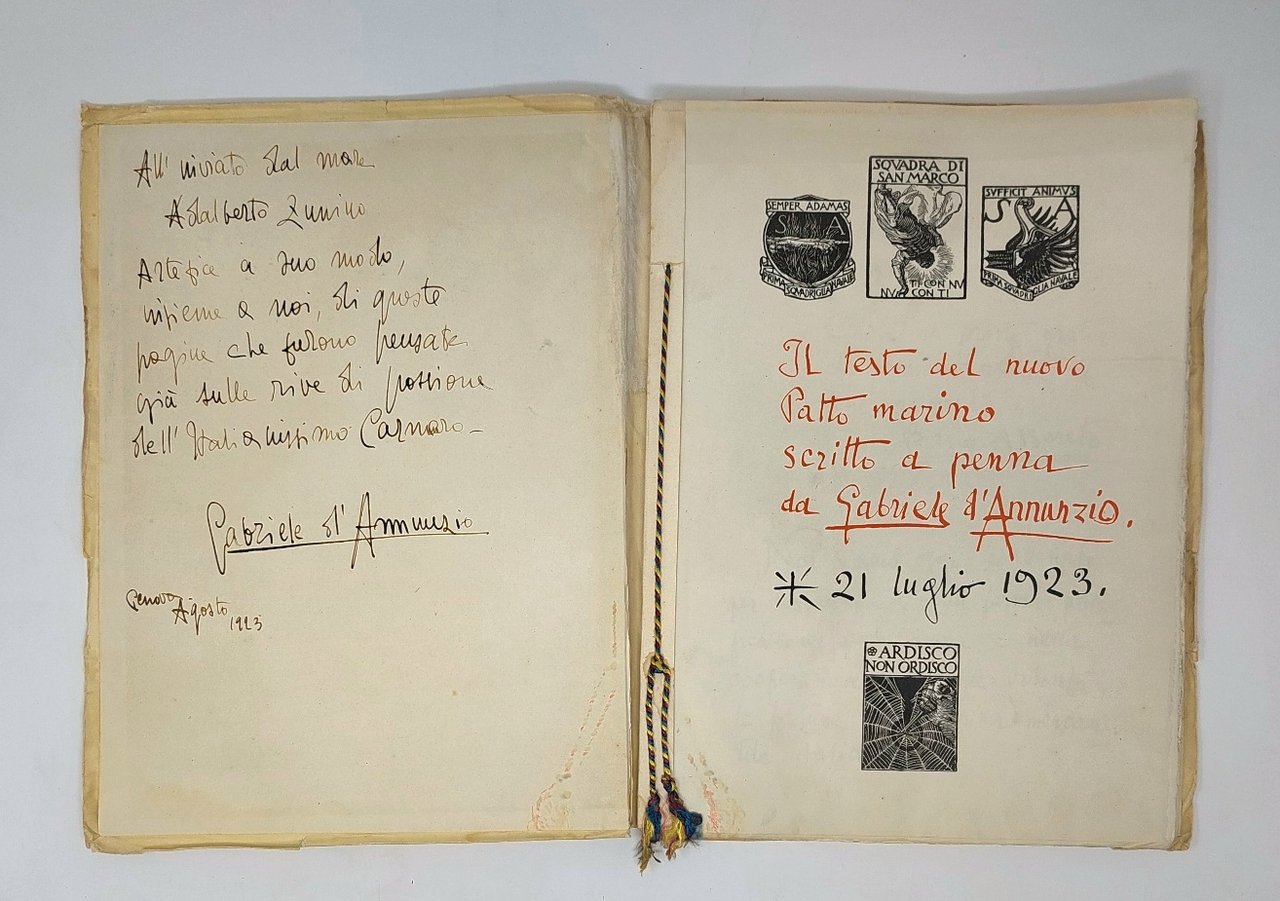 All' inviato dal mare
Adalberto Zunino
Artefice a suo modo,
insieme a noi, di queste
pagine che furono pensate
già sulle rive di passione
dell' Italianissimo Carnaro_
Gabriele d'Annunzio
Genova
Agosto
1923
SEMPER ADAMAS
S A
PRIMA SQVADRIGLIA NAVALE
SQVADRA DI
SAN MARCO
TI CON NV
NV CON TI
SVFFICIT ANIMVS
S A
PRIMA SQVADRIGLIA NAVALE
Il testo del nuovo
Patto marino
scritto a penna
da Gabriele d'Annunzio.
21 luglio 1923.
ARDISCO
NON ORDISCO